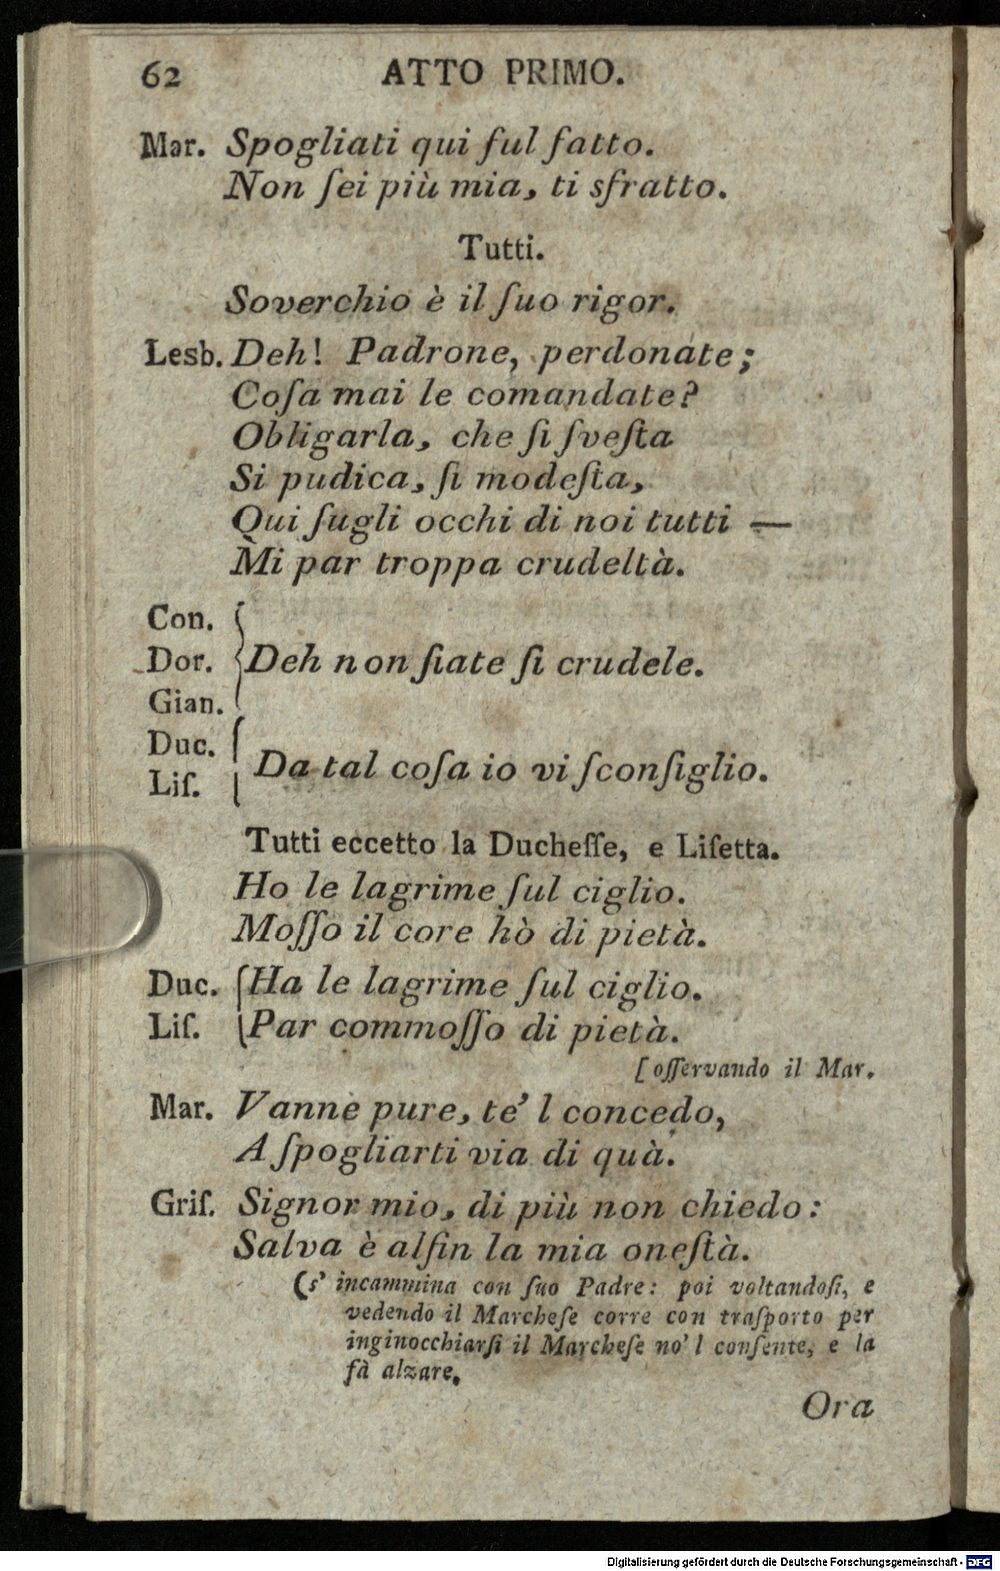 62 ATTO PRIMO.
Mar. Spogliati qui ſul fatto.
Non ſei più mia, ti sfratto.
Tutti.
Soverchio è il ſuo rigor.
Lesb. Deh! Padrone, perdonate;
Coſa mai le comandate?
Obligarla, che ſi ſveſta
Si pudica, ſi modeſta,
Qui ſugli occhi di noi tutti —
Mi par troppa crudeltà.
Con.
Dor. Deh non ſiate ſi crudele.
Gian.
Duc.
Liſ. Da tal coſa io vi ſconſiglio.
Tutti eccetto la Ducheſſe, e Liſetta.
Ho le lagrime ſul ciglio.
Moſſo il core hò di pietà.
Duc. Ha le lagrime ſul ciglio.
Liſ. Par commoſſo di pietà.
[oſſervando il Mar.
Mar. Vanne pure, te' l concedo,
A ſpogliarti via di quà.
Griſ. Signor mio, di più non chiedo:
Salva è alfin la mia oneſtà.
(s' incammina con ſuo Padre: poi voltandoſi, e
vedendo il Marcheſe corre con traſporto per
inginocchiarſi il Marcheſe no' l conſente, e la
fà alzare.
Ora
Digitalisierung gefördert durch die Deutsche Forschungsgemeinschaft - DFG